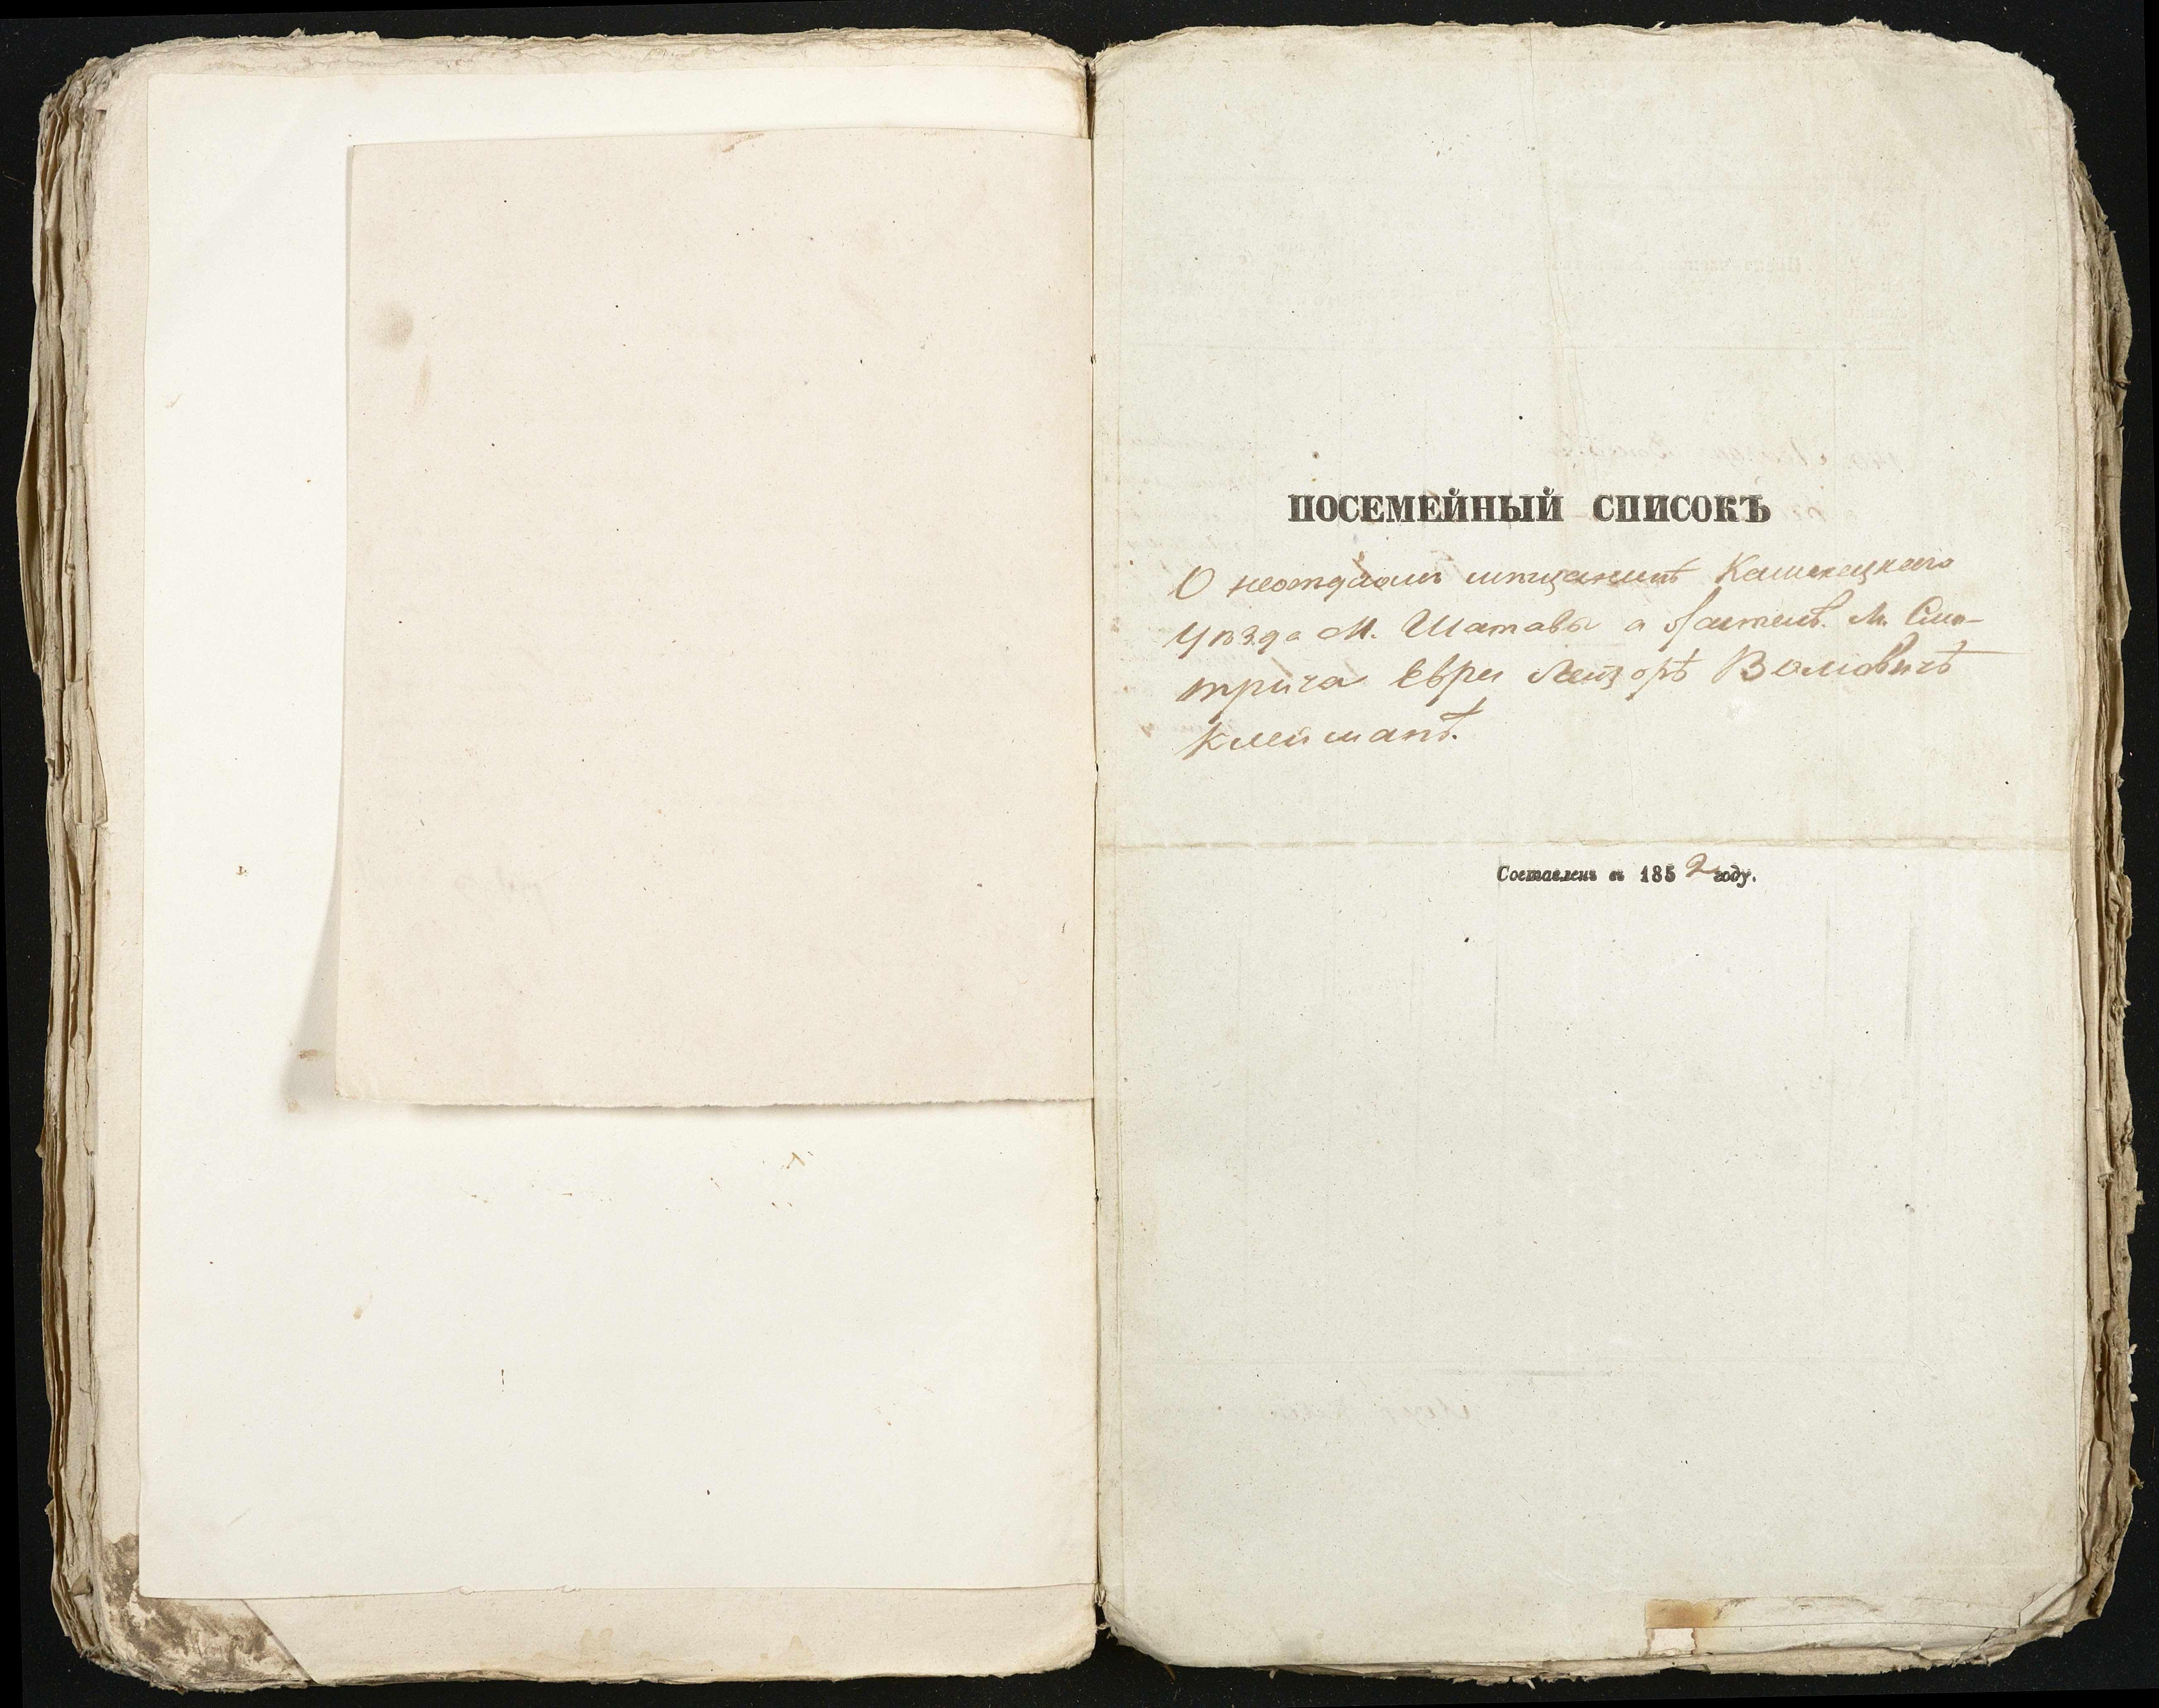 ПОСЕМЕЙНЫЙ СПИСОКЪ
О неотдаомъ мещанинѣ Каменецкаго
уѣзда М. Шатавы а М. Смо-
трича Еврей Лейзоръ Волковичъ
Клейманъ.
Составленъ въ 1852 году.